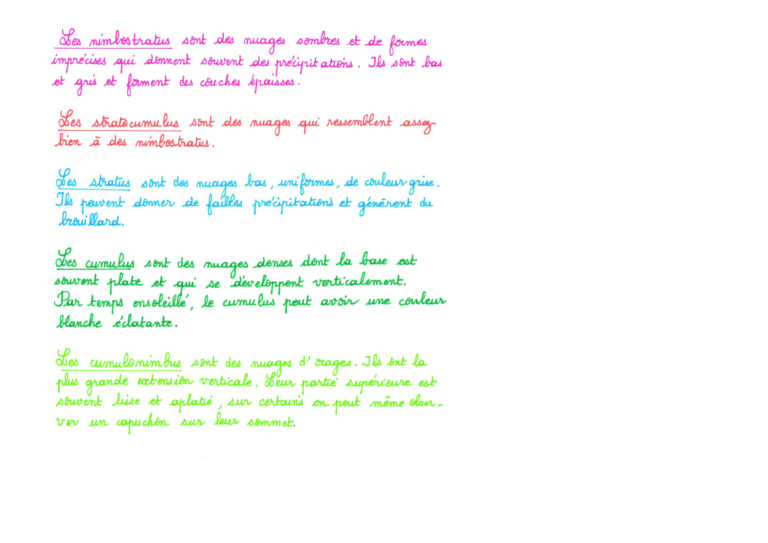 Les nimbostratus sont des nuages sombres et de formes
imprécises qui donnent souvent des précipitations. Ils sont bas
et gris et forment des couches épaisses.
Les stratocumulus sont des nuages qui ressemblent assez
bien à des nimbostratus.
Les stratus sont des nuages bas, uniformes, de couleur grise.
Ils peuvent donner de failles précipitations et génèrent du
brouillard.
Les cumulus sont des nuages denses dont la base est
souvent plate et qui se développent verticalement.
Par temps ensoleillé, le cumulus peut avoir une couleur
blanche éclatante.
Les cumulonimbus sont des nuages d'orages. Ils ont la
plus grande extension verticale. Leur partie supérieure est
souvent lisse et aplatie, sur certains on peut même obser-
ver un capuchon sur leur sommet.